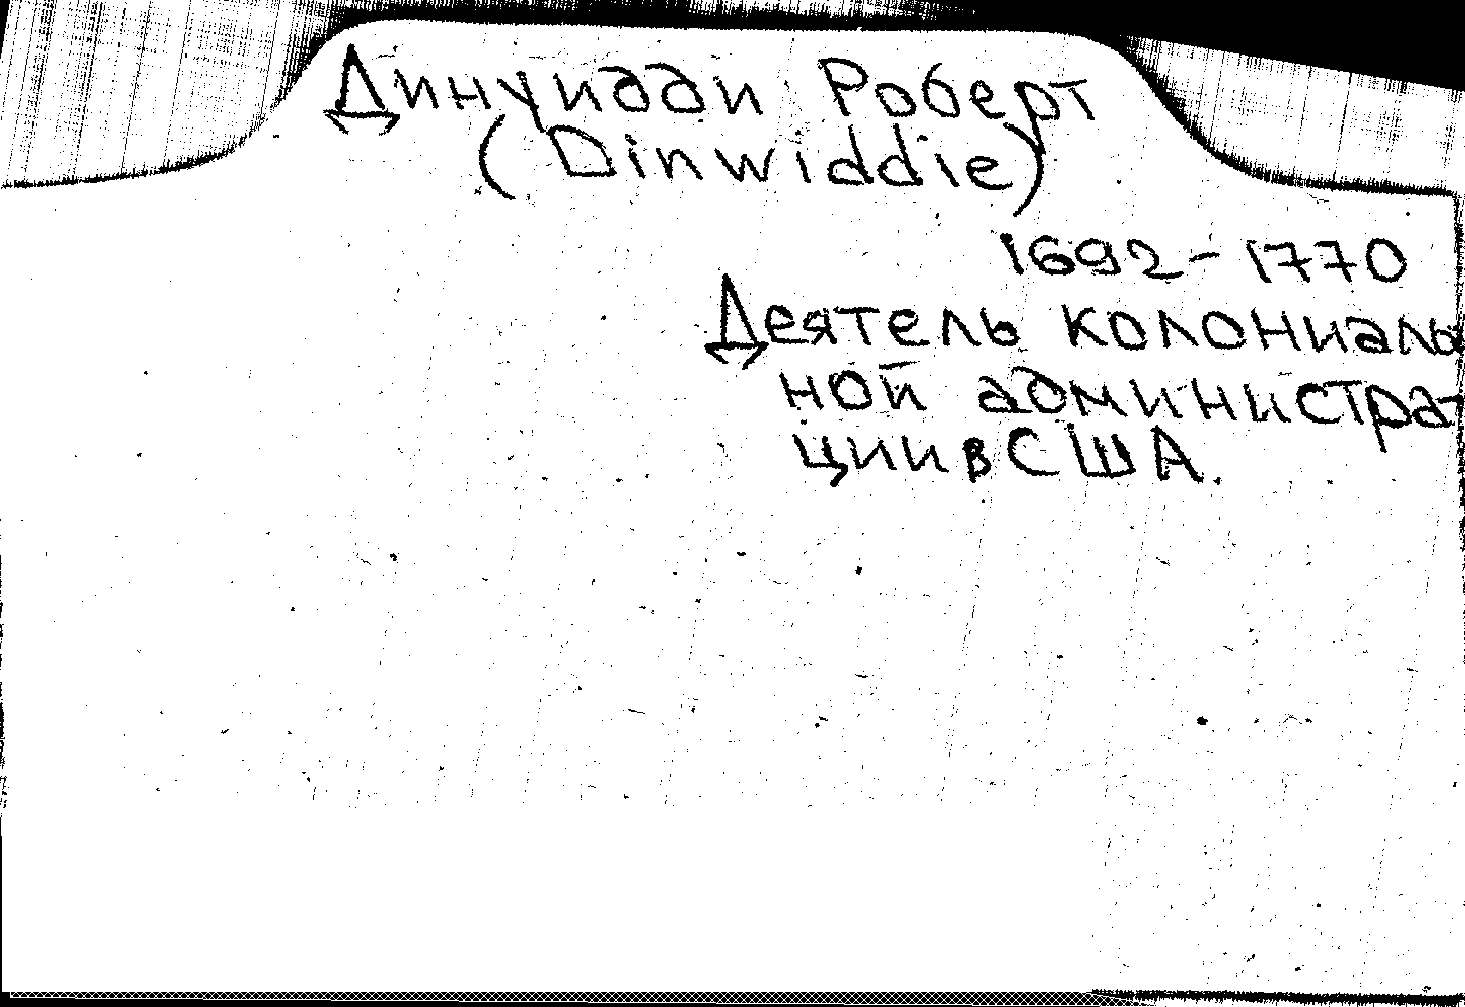 Динуидди Роберт
(Dinwiddie)
1692-1770
Деятель колониаль
ной администрат
ции в США.